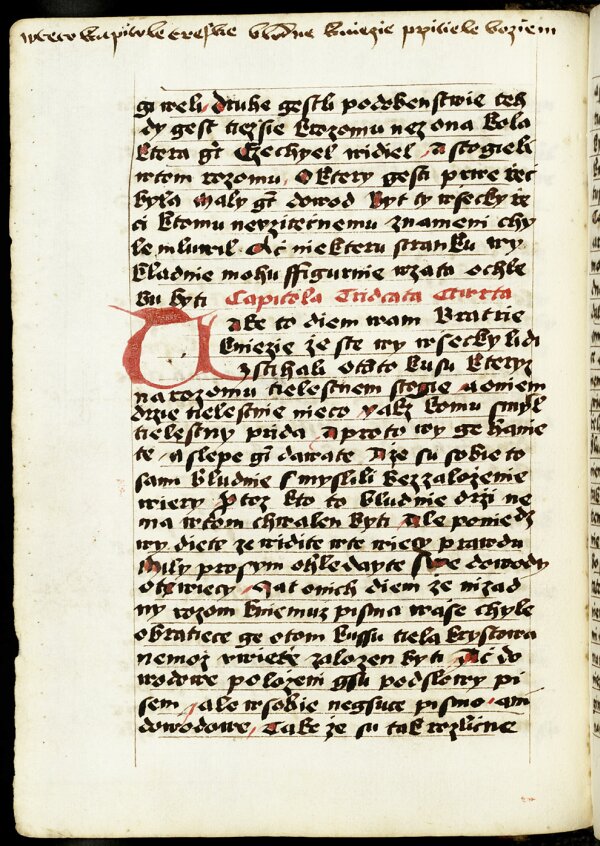 gi weli. druhe gestli podobenstwie teh
dy gest tiezsie krozomu nez ona kola
ktera gt Ezechyel widiel. a stogieli
wtom rozomu. o ktery gesti prwe rzeci
byla maly gt dowod byt ty wsecky rze
ci ktomu neyziterinemu znameni chy
le mluwil. Ac niekteru stranku wy
kladnie mohu ffigurnie wzata o chle
bu byti Capitola Tridcata Ctwrta
Take to diem wam Bratrie
kniezie ze ste wy wsecky lidi
zstihali ototo kusu kteryz
na rozomu tielestnem stogie. a o niem
drzie tielestnie nieco. yakz komu smysl
tielestny prida. a proto wy ge hanie
te. a slepe gi dawate. a ze su sobie to
sam bludnie smyslili bez zalozenie
wiery. Ptoz kto to bludnie drzi ne
ma wtom chwalen byti. Ale poniedz
wy diete ze widite wte wiecy prawdu
Mily prosym ohledayte swe dowody
ote wiecy. a at onich diem ze nizad
ny rozom kniemuz pisma wase chyle
obratiece ge otom kussu tiela krystowa
nemoz uwiere zalozen byti. Ac do
wodowe polozeni gsu pod slowy pi
sem. ale wsobie negsuce pismo. am
dowodowe. Take ze su tak rozlicne